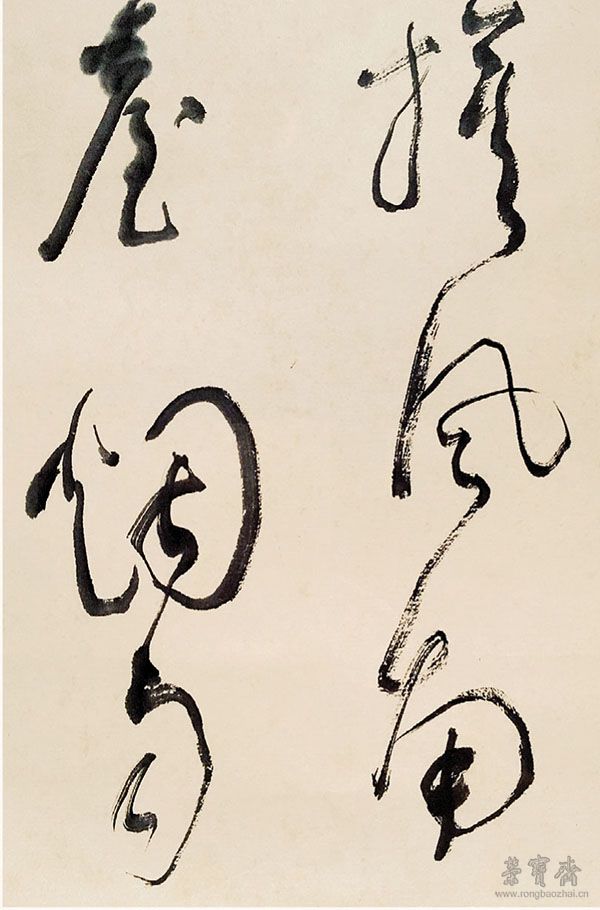 旗風南
臺烟雨
榮寶齋
www.rongbaozhai.cn